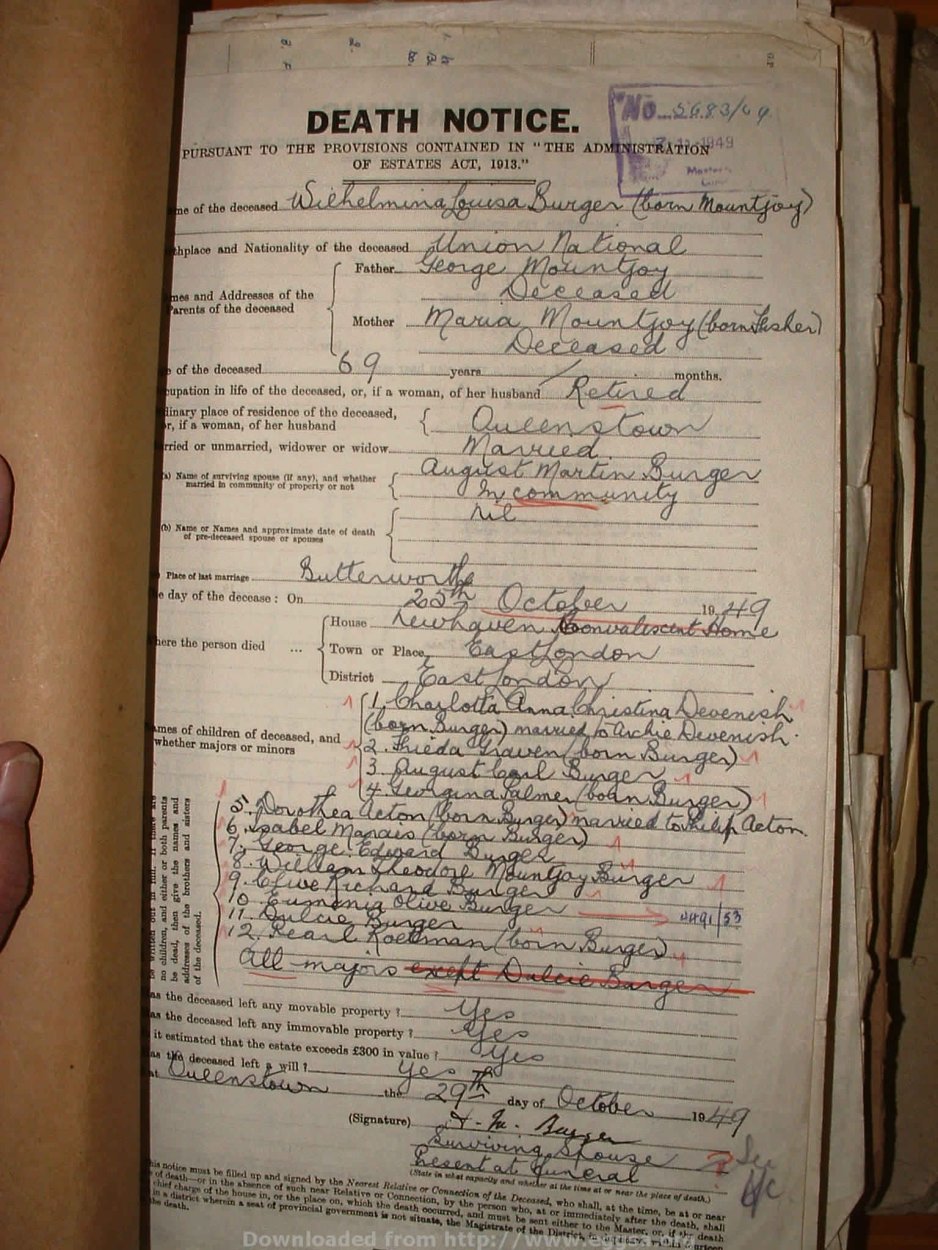 DEATH NOTICE.
No. 5683/49
1949
Master's
PURSUANT TO THE PROVISIONS CONTAINED IN "THE ADMINISTRATION
OF ESTATES ACT, 1913."
me of the deceased Wilhelmina Louisa Burger (born Mountjoy)
thplace and Nationality of the deceased Union National
mes and Addresses of the Parents of the deceased
Father George Mountjoy
Deceased
Mother Maria Mountjoy (born
Deceased
e of the deceased 69 years / months.
cupation in life of the deceased, or, if a woman, of her husband Retired
dinary place of residence of the deceased,
r, if a woman, of her husband { Queenstown
rried or unmarried, widower or widow Married.
a) Name of surviving spouse (if any), and whether
married in community of property or not { August Martin Burger
In community
(b) Name or Names and approximate date of death
of pre-deceased spouse or spouses { nil
) Place of last marriage Butterworth
e day of the decease : On 25th October 1949
here the person died ...
House Newhaven Convalescent Home
Town or Place East London
District East London
ames of children of deceased, and
whether majors or minors
1. Charlotta Anna Christina Devenish
(born Burger) married to Archie Devenish.
2. Frieda Graven (born Burger)
3. August Carl Burger
4. Georgina Palmer (born Burger)
5. Dorothea Acton (born Burger) married to Philip Acton.
6. Isabel Marais (born Burger)
7. George Edward Burger
8. William Theodore Mountjoy Burger
9. Clive Richard Burger
10. Eumenia Olive Burger 4491/53
11. Dulcie Burger
12. Pearl Koekman (born Burger)
All majors except Dulcie Burger
no children, and either or both parents
be dead, then give the names and
addresses of the brothers and sisters
of the deceased.
as the deceased left any movable property ? Yes
as the deceased left any immovable property ? Yes
it estimated that the estate exceeds £300 in value ? Yes
as the deceased left a will ? Yes
at Queenstown the 29th day of October 1949
(Signature) A. M. Burger
Surviving Spouse
Present at funeral
(State in what capacity and whether at the time at or near the place of death.)
his notice must be filled up and signed by the Nearest Relative or Connection of the Deceased, who shall, at the time, be at or near
e of death—or in the absence of such near Relative or Connection, by the person who, at or immediately after the death, shall
chief charge of the house in, or the place on, which the death occurred, and must be sent either to the Master, or, if the death
in a district wherein a seat of provincial government is not situate, the Magistrate of the District, in duplicate, within fourteen
the death.
Downloaded from http://www.eggsa.org